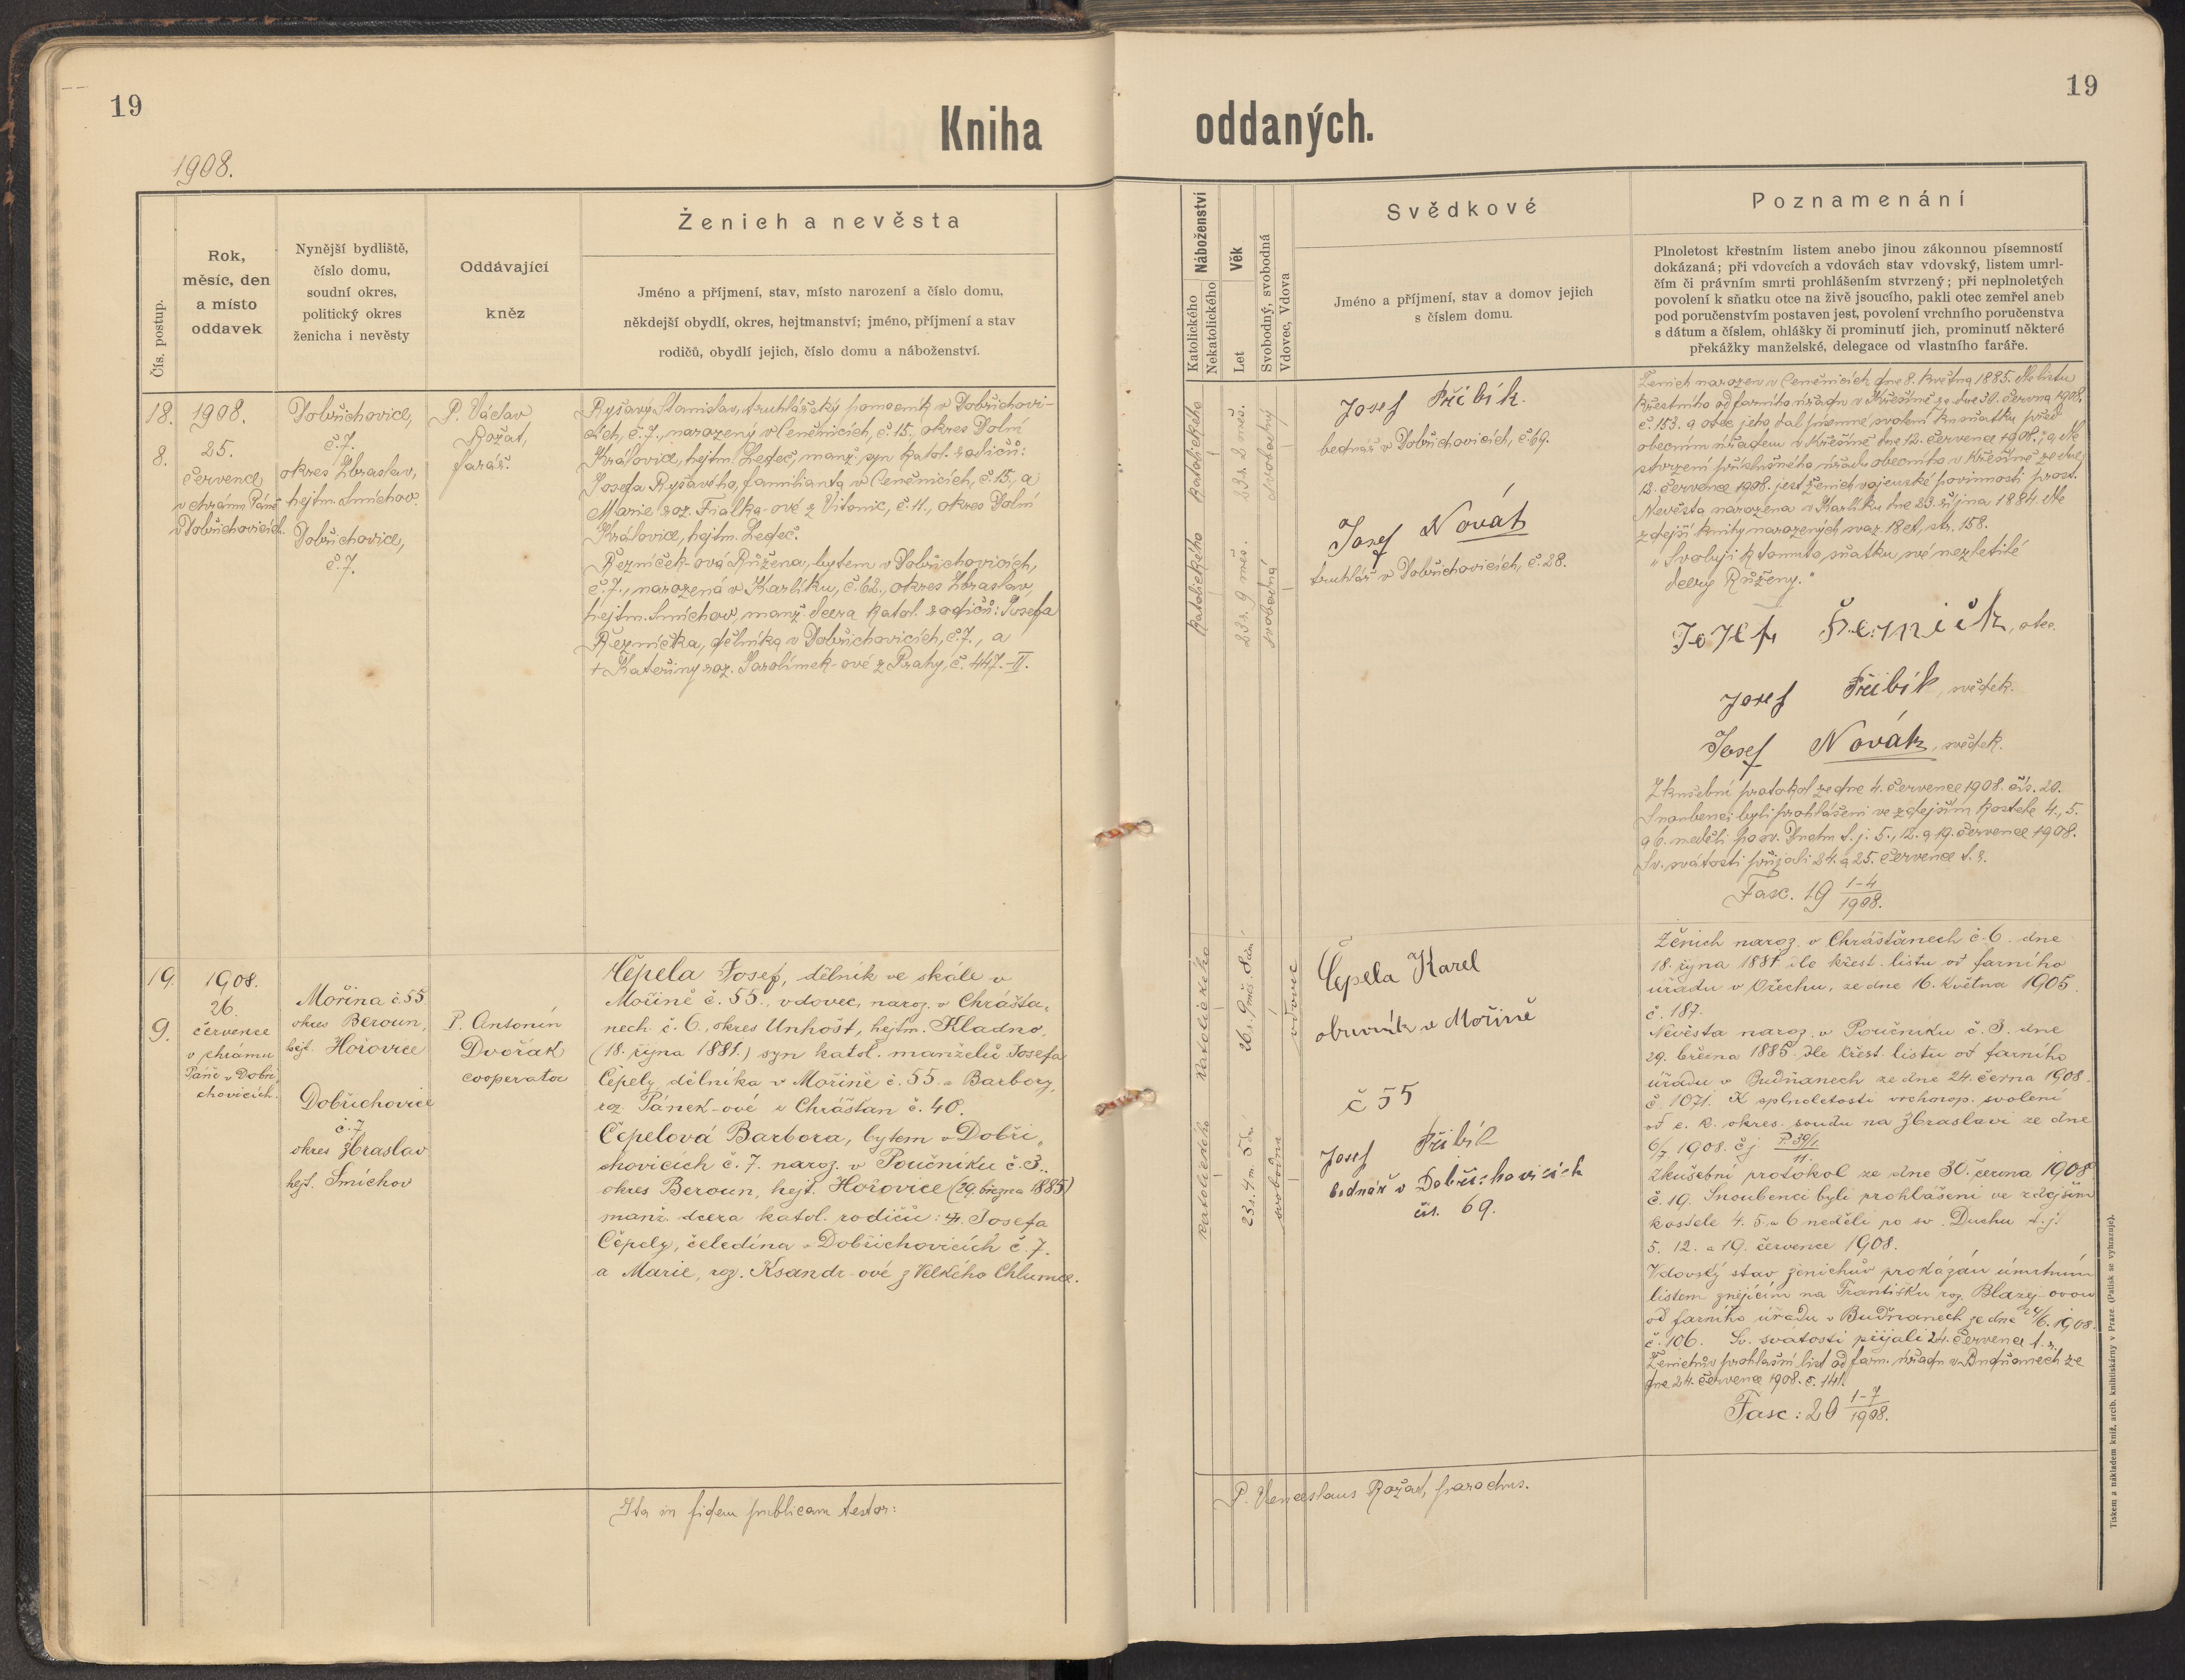 19
19
Kniha
oddaných.
1908.
Čís. postup.
Rok,
měsíc, den
a místo
oddavek
Nynější bydliště,
číslo domu,
soudní okres,
politický okres
ženicha i nevěsty
Oddávající
kněz
Ženich a nevěsta
Jméno a příjmení, stav, místo narození a číslo domu,
někdejší obydlí, okres, hejtmanství; jméno, příjmení a stav
rodičů, obydlí jejich, číslo domu a náboženství.
Náboženství
Katolického
Nekatolického
Věk
Let
Svobodný, svobodná
Vdovec, Vdova
Svědkové
Jméno a příjmení, stav a domov jejich
s číslem domu.
Poznamenání
Plnoletost křestním listem anebo jinou zákonnou písemností
dokázaná; při vdovcích a vdovách stav vdovský, listem umrl-
čím či právním smrti prohlášením stvrzený; při neplnoletých
povolení k sňatku otce na živě jsoucího, pakli otec zemřel aneb
pod poručenstvím postaven jest, povolení vrchního poručenstva
s dátum a číslem, ohlášky či prominutí jich, prominutí některé
překážky manželské, delegace od vlastního faráře.
18.
8.
1908.
25.
července
v chrámu Páně
v Dobřichovicích.
Dobřichovice,
č. 7.
okres Zbraslav,
hejtm. Smíchov.
Dobřichovice,
č. 7.
P. Václav
Rožat,
farář.
Ryšavý Stanislav, truhlářský pomocník v Dobřichovi-
cích, č. 7., narozený v Čeněnicích, č. 15., okres Dolní
Královice, hejtm. Ledeč, manž. syn katol. rodičů:
Josefa Ryšavého, familianta v Čeněnicích, č. 15., a
Marie roz. Fialka-ové z Vitonic, č. 11., okres Dolní
Královice, hejtm. Ledeč.
Řezníček-ová Růžena, bytem v Dobřichovicích,
č. 7., narozená v Karlíku, č. 62., okres Zbraslav,
hejtm. Smíchov, manž. dcera katol. rodičů: Josefa
Řezníčka, dělníka v Dobřichovicích, č. 7., a
+ Kateřiny roz. Jarolímek-ové z Prahy, č. 447.-II.
katolického
katolického
23 r. 2 měs.
23 r. 9 měs.
svobodný
svobodná
Josef Přibík.
bednář v Dobřichovicích, č. 69.
Josef Novák
truhlář v Dobřichovicích, č. 28.
Ženich narozen v Čeněnicích dne 8. května 1885. dle listu
křestního od farního úřadu v Křešíně ze dne 30. června 1908.
č. 153. a otec jeho dal písemné svolení ku sňatku před
obecním úřadem v Křešíně dne 12. července 1908.; a dle
stvrzení příslušného úřadu obecního v Křešíně ze dne
12. července 1908. jest ženich vojenské povinnosti prost.
Nevěsta narozena v Karlíku dne 23. října 1884. dle
zdejší knihy narozených svaz. 18 et., str. 158.
„Svoluji k tomuto sňatku své nezletilé
dcery Růženy."
Josef Řezníček, otec.
Josef Přibík, svědek.
Josef Novák, svědek.
Zkušební protokol ze dne 4. července 1908. čís. 20.
Snoubenci byli prohlášeni ve zdejším kostele 4., 5.
a 6. neděli po sv. Duchu t. j. 5., 12. a 19. července 1908.
Sv. svátosti přijali 24. a 25. července t. r.
Fasc. 19 1-4/1908.
19.
9.
1908.
26.
července
v chrámu
Páně v Dobři-
chovicích.
Mořina č. 55
okres Beroun,
hejt. Hořovice
Dobřichovice
č. 7
okres Zbraslav
hejt. Smíchov
P. Antonín
Dvořák
cooperator
Čepela Josef, dělník ve skále v
Mořině č. 55., vdovec, naroz. v Chrášťa-
nech č. 6., okres Unhošť, hejtm. Kladno,
(18. října 1881.) syn katol. manželů Josefa
Čepely, dělníka v Mořině č. 55. a Barbory,
roz. Pánek-ové z Chrášťan č. 40.
Čepelová Barbora, bytem v Dobři-
chovicích č. 7. naroz. v Poučníku č. 3.,
okres Beroun, hejt. Hořovice (29. března 1885)
manž. dcera katol. rodičů: Josefa
Čepely, čeledína v Dobřichovicích č. 7.
a Marie, roz. Ksandr-ové z Velkého Chlumce.
katolického
katolického
26 r. 9 měs. 8 dní
23 r. 4 m.
vdovec
svobodna
Čepela Karel
obuvník v Mořině
č 55
Josef Přibík
bednář v Dobřichovicích
čís. 69.
Ženich naroz. v Chrášťanech č. 6. dne
18. října 1881 dle křest. listu od farního
úřadu v Ořechu, ze dne 16. května 1905.
č. 187.
Nevěsta naroz. v Poučníku č. 3. dne
29. března 1885. dle křest. listu od farního
úřadu v Budňanech ze dne 24. června 1908.
č. 1071. K splnoletosti vrchnop. svolení
od c. k. okres. soudu na Zbraslavi ze dne
6/7 1908. čj.
Zkušební protokol ze dne 30. června 1908
č. 19. Snoubenci byli prohlášeni ve zdejším
kostele 4. 5. a 6 neděli po sv. Duchu t. j.
5. 12. a 19. července 1908.
Vdovský stav ženichův prokázán úmrtním
listem znějícím na Františku roz. Blazej-ovou
od farního úřadu v Budňanech ze dne 24/6. 1908.
č. 106. Sv. svátosti přijali 24. července t. r.
Ženichův prohlašní list od farn. úřadu v Budňanech ze
dne 24. července 1908. č. 141.
Fasc: 20 1-7/1908.
Ita in fidem publicam testor:
P. Venceslaus Rožat, parochus.
Tiskem a nákladem kníž. arcib. knihtiskárny v Praze. (Patisk se vyhrazuje).